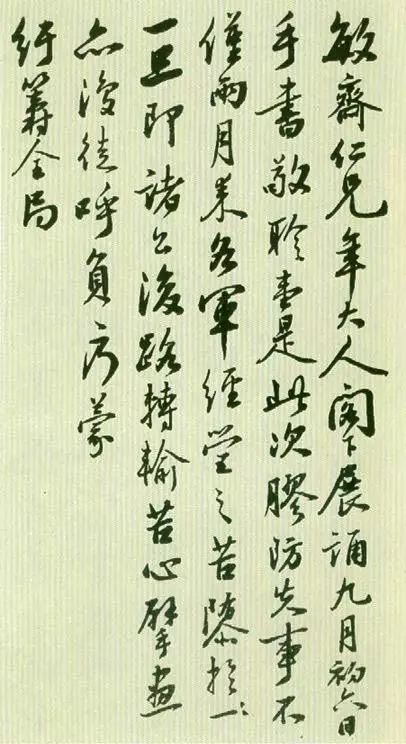 敏齋仁兄年大人閣下展誦九月初六日
手書敬聆壹是此次膠防失事不
僅兩月来各軍經營之苦隳於一
一旦即諸公後路轉輸苦心擘畫
亦復徒呼負蒙
紆籌全局